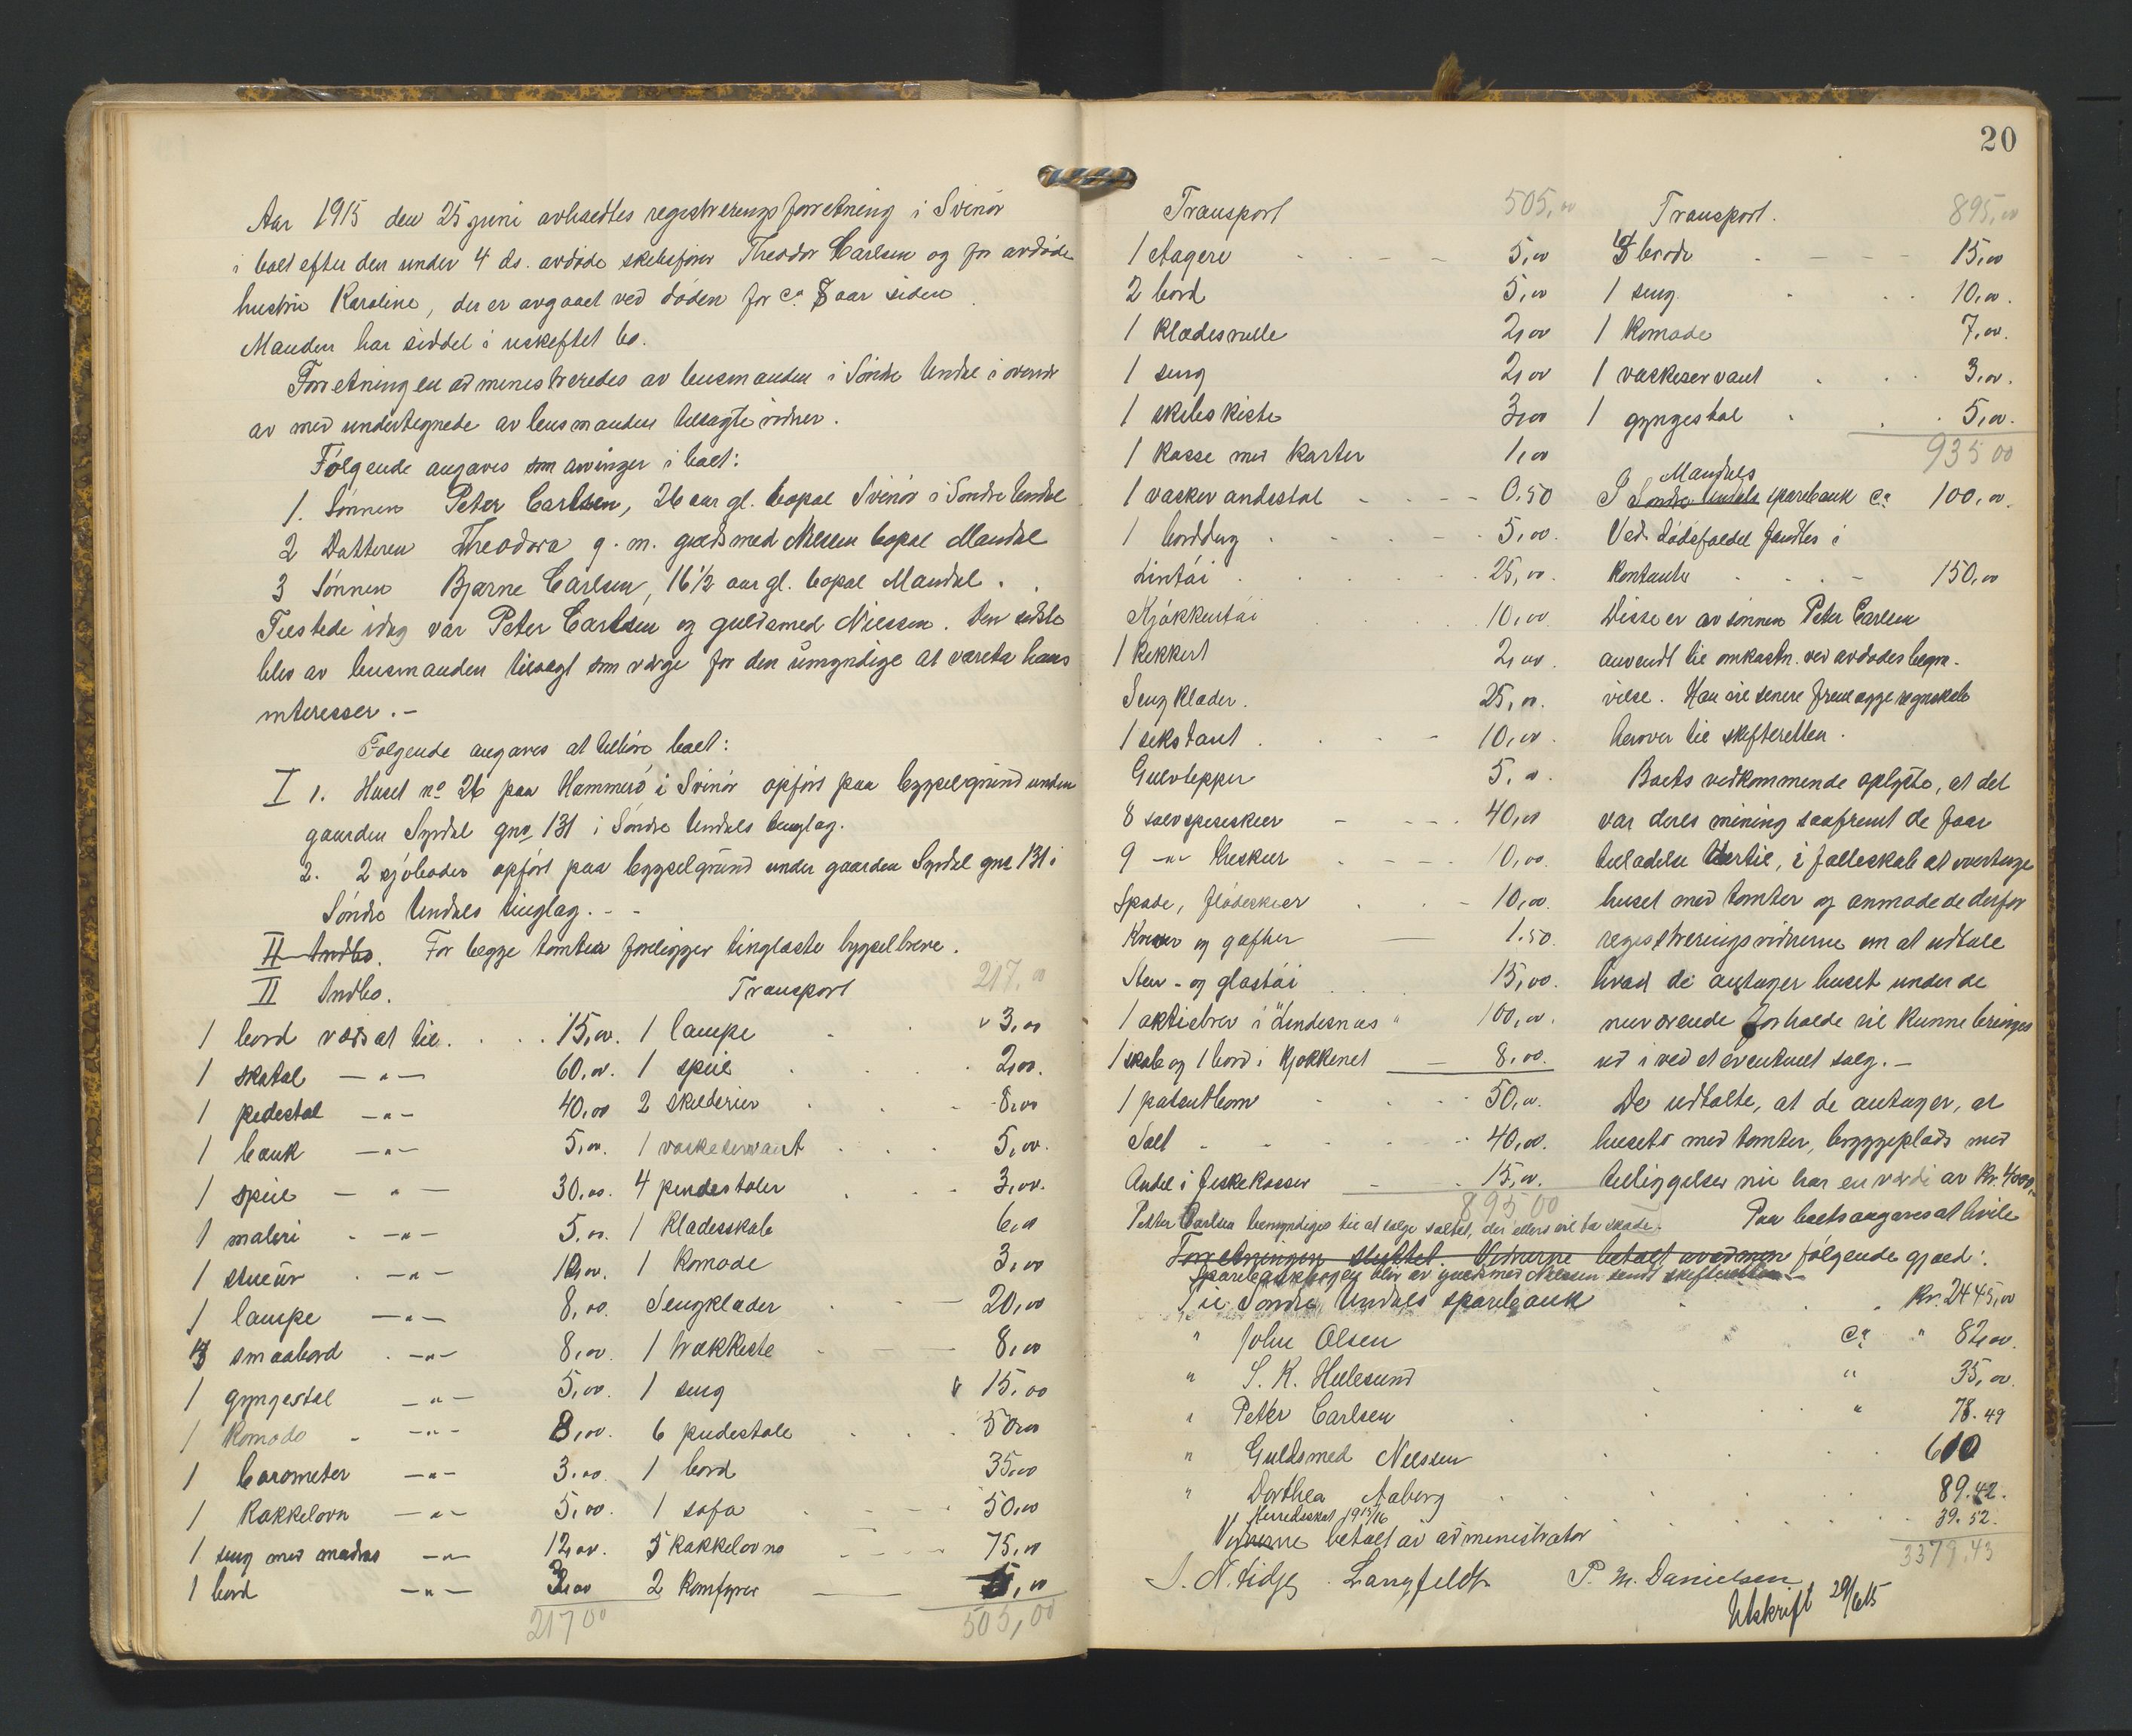 Aar 1915 den 25 juni avholdtes registreringsforretning i Svinör
i boet efter den under 4 ds. avdöde skibsförer Theodor Carlsen og for avdöde
hustru Karoline, der er avgaaet ved döden for ca. 8 aar siden.
Manden har siddet i uskiftet bo.
Forretningen administreredes av lensmanden i Söndre Undal i overvær
av med undertegnede av lensmanden tilsagte vidner.
Følgende angaves som arvinger i boet:
1. Sönnen Peter Carlsen, 26 aar gl. bopæl Svinör i Söndre Undal
2 Datteren Theodora g. m. guldsmed Nielsen bopæl Mandal
3 Sönnen Bjarne Carlsen, 16 1/2 aar gl. bopæl Mandal.
Tilstede idag var Peter Carlsen og guldsmed Nielsen. Den sidste
blev av lensmanden tilsagt som værge for den umyndige at vareta hans
interesser. -
Følgende angaves at tilhöre boet:
I 1. Huset no 26 paa Hammerö i Svinör opfört paa bygselgrund under
gaarden Syrdal gno 131 i Söndre Undals tinglag.
2. 2 sjöboder opfört paa bygselgrund under gaarden Syrdal gno 131 i
Söndre Undals tinglag. - -
II Indbo. For begge tomter foreligger tinglæste bygselbreve.
II Indbo.
1 bord værdsat til . . . 15,00.
1 skatol — " — 60,00.
1 pidestal — " — 40,00
1 bænk — " — 5,00.
1 speil — " — 30,00.
1 maleri — " — 5,00.
1 stueur — " — 10,00.
1 lampe — " — 8,00.
3 smaabord — " — 8,00.
1 gyngestol — " — 5,00.
1 Komode — " — 8,00.
1 barometer — " — 3,00.
1 Kakkelovn — " — 5,00.
1 seng med madras — " — 12,00.
1 bord — " — 3,00
217 00
Transport 217,00
1 lampe 3,00
1 speil 2,00.
2 skilderier 8,00
1 vaskeservant 5,00.
4 pindestoler 3,00.
1 Klædesskab 6,00
1 Komode 3,00
Sengklæder 20,00
1 trækkiste 8,00
1 seng 15,00
6 pudestole 50,00
1 bord 35,00
1 sofa 50,00
3 Kakkelovne 75,00
2 Komfyrer 5,00
505,00
20
Transport 505,00
1 etagere 5,00
2 bord 5,00
1 Klædesrulle 2,00
1 seng 2,00
1 skibskiste 3,00
1 Kasse med Karter 1,00
1 vaskevandsstol 0,50
1 borddug 5,00.
Lintöi 25,00.
Kjökkentöi 10,00
1 Kikkert 2,00.
Sengklæder. 25,00.
1 sekstant 10,00.
Gulvtepper 5,00.
8 sölvspiseskeer 40,00
9 — " — theskeer 10,00.
Spade, flödeskeer 10,00.
Kniver og gafler 1.50.
Sten- og glastöi 15,00.
1 aktiebrev i "Lindesnæs" 100,00.
1 skab og 1 bord i Kjökkenet 8,00.
1 patentkom 50,00.
Salt 40,00.
Andel i fiskekasser 15,00.
895 00
Petter Carlsen bemyndiges til at sælge saltet, der ellers vil ta skade.
Forretningen sluttet. Vidnerne betalt av admin
Sparebankbogen blev av guldsmed Nielsen sendt skifteretten -
Transport. 895,00
borde 15,00
1 seng 10,00.
1 Komode 7,00.
1 vaskeservant 3,00.
1 gyngestol 5,00.
935 00
Mandals
I Söndre Undals sparebank ca. 100,00.
Ved dödsfaldet fandtes i
Kontanter 150,00
Disse er av sönnen Peter Carlsen
anvendt til omkostn. ved avdödes begra-
velse. Han vil senere fremlægge regnskab
herover til skifteretten.
Boets vedkommende oplyste, at det
var deres mening saafremt de faar
tilladelse hertil, i fælleskab at overtage
huset med tomter og anmodede derfor
registreringsvidnerne om at udtale
hvad de antager huset under de
nuværende forholde vil kunne bringes
ud i ved et eventuelt salg. -
De udtalte, at de antager, at
husets med tomter, byggeplads med
tilliggelser nu har en værdi av Kr. 4000,-
Paa boets angaves at hvile
følgende gjæld:
Til Söndre Undals sparebank Kr. 2445,00
" John Olsen ca. " 82,00.
" S. K. Hillesund " 35,00.
" Peter Carlsen " 78.49
" Guldsmed Nielsen 610
" Dorthea Aaberg 89.42.
Herredsskat 1915/16 39.52.
3379.43
Vidnerne betalt av administrator
Langfeldt P. M. Danielsen
Utskrift 29/6 15